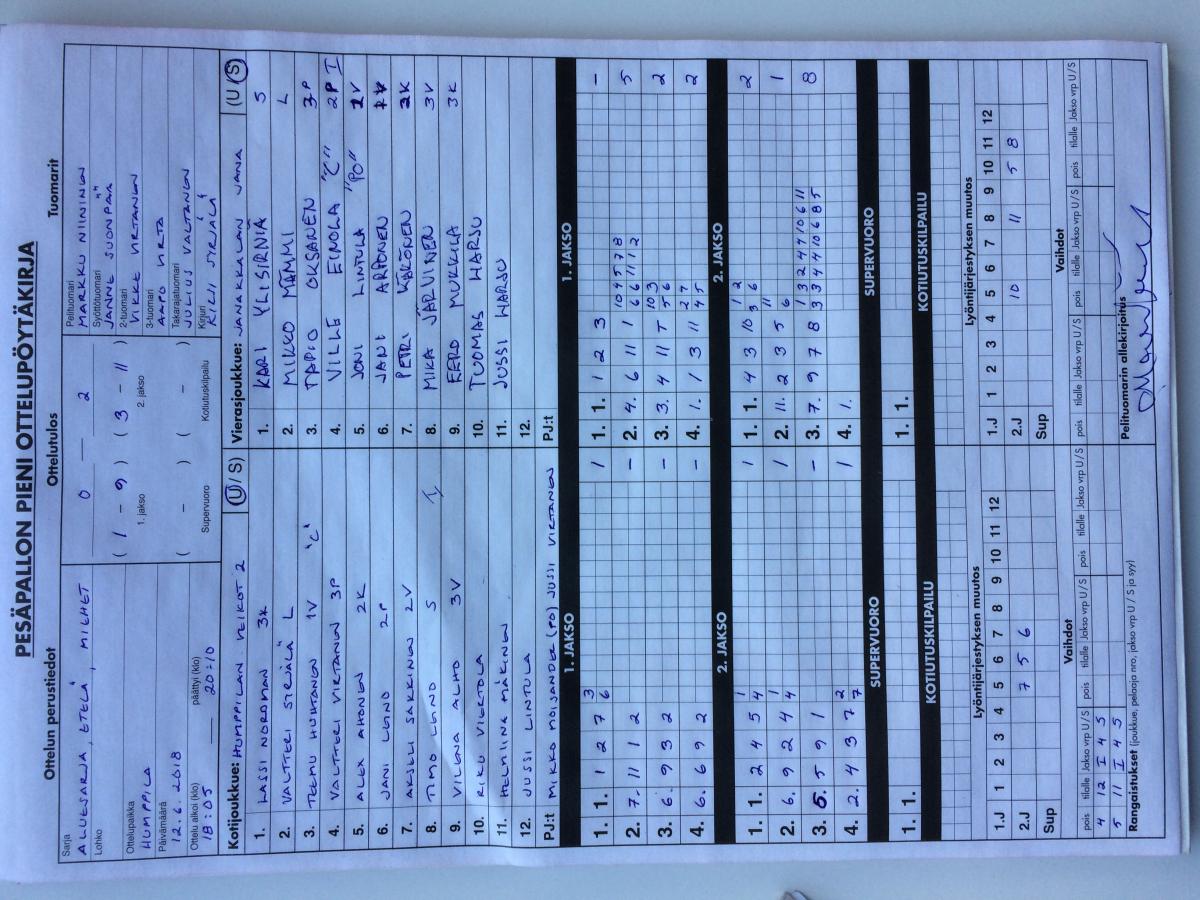 PESÄPALLON PIENI OTTELUPÖYTÄKIRJA
Ottelun perustiedot
Ottelutulos
Tuomarit
Sarja
ALUESARJA, ETELÄ, MIEHET
Lohko
Ottelupaikka
HUMPPILA
Päivämäärä
12.6.2018
Ottelu alkoi (klo)
päättyi (klo)
18:05
20:10
0 — 2
( 1 - 9 ) ( 3 - 11 )
1. jakso
2. jakso
( - ) ( - )
Supervuoro
Kotiutuskilpailu
Pelituomari
MARKKU NIININEN
Syöttötuomari
JANNE SUONPÄÄ
2-tuomari
VIKKE VIRTANEN
3-tuomari
AAPO VIRTA
Takarajatuomari
JULIUS VALTANEN
Kirjuri
KILLI SYRJÄLÄ
Kotijoukkue: HUMPPILAN VEIKOT 2 (U / S)
1. LASSI NORDMAN 3K
2. VALTTERI SIRJÄLÄ L
3. TEEMU HUHTANEN 1V "C"
4. VALTTERI VIRTANEN 3P
5. ALEX AHONEN 2K
6. JANI LEINO 2P
7. AKSELI SAKKINEN 2V
8. TIMO LEINO S I
9. VILLENA ALHO 3V
10. RIKU VIERTOLA
11. HELMIINA MÄKINEN
12. JUSSI LINTULA
PJ:t MIKKO MOISANDER (PO) JUSSI VIRTANEN
Vierasjoukkue: JANAKKALAN JANA (U / S)
1. KARI YLISIRNIÄ S
2. MIKKO MÄMMI L
3. TAPIO OKSANEN 3P
4. VILLE EINOLA "C" 2P I
5. JONI LINTULA "PO" 1V
6. JANI ARONEN
7. PETRI KÄKÖNEN 2K
8. MIKA JÄRVINEN 3V
9. EERO MUKKILA 3K
10. TUOMAS HARJU
11. JUSSI HARJU
12.
PJ:t
1. JAKSO
1. 1. 1 2 7 3 6 1
2. 7. 11 1 2 -
3. 6. 9 3 2 -
4. 6. 6 9 2 -
2. JAKSO
1. 1. 2 4 5 1 4 1
2. 6. 9 2 4 1 4 1
3. 5. 5 9 1 -
4. 2. 4 3 7 2 7 1
SUPERVUORO
1. 1.
KOTIUTUSKILPAILU
1. JAKSO
1. 1. 1 2 3 -
2. 4. 6 11 1 10 4 5 7 8 6 6 11 1 2 5
3. 3. 4 11 T 10 3 5 6 2
4. 1. 1 3 11 2 7 4 5 2
2. JAKSO
1. 1. 4 3 10 1 2 3 6 2
2. 11. 2 3 5 11 6 1
3. 7. 9 7 8 1 3 2 4 4 7 10 6 11 3 3 4 4 10 6 8 5 8
4. 1.
SUPERVUORO
1. 1.
KOTIUTUSKILPAILU
Lyöntijärjestyksen muutos
1.J 1 2 3 4 5 6 7 8 9 10 11 12
2.J 7 5 6
Sup
Vaihdot
pois tilalle Jakso vrp U/S pois tilalle Jakso vrp U/S pois tilalle Jakso vrp U/S
4 12 I 4 S
5 11 I 4 S
Rangaistukset (joukkue, pelaaja nro, jakso vrp U / S ja syy)
Lyöntijärjestyksen muutos
1.J 1 2 3 4 5 6 7 8 9 10 11 12
2.J 10 11 5 8
Sup
Vaihdot
pois tilalle Jakso vrp U/S pois tilalle Jakso vrp U/S pois tilalle Jakso vrp U/S
Pelituomarin allekirjoitus